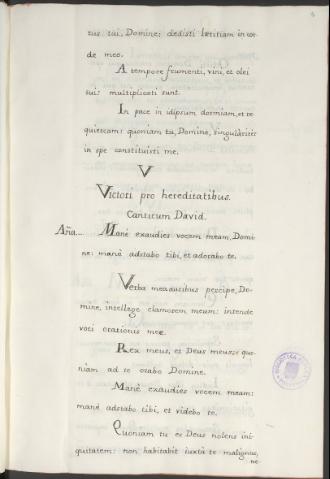 tus tui, Domine: dedisti lætitiam in cor-
de meo.
A tempore frumenti, vini, et olei
sui: multiplicati sunt.
In pace in idipsum dormiam, et re
quiescam: quoniam tu, Domine, singulariter
in spe constituisti me.
V
Victori pro hereditatibus.
Canticum David.
Aña... Manè exaudies vocem meam, Domi-
ne: manè adstabo tibi, et adorabo te.
Verba mea auribus percipe, Do-
mine, intellege clamorem meum: intende
voci orationis meæ.
Rex meus, et Deus meus: quo-
niam ad te orabo Domine.
Manè exaudies vocem meam:
manè adstabo tibi, et videbo te.
Quoniam tu es Deus nolens ini-
quitatem: non habitabit iuxtà te malignus,
ne